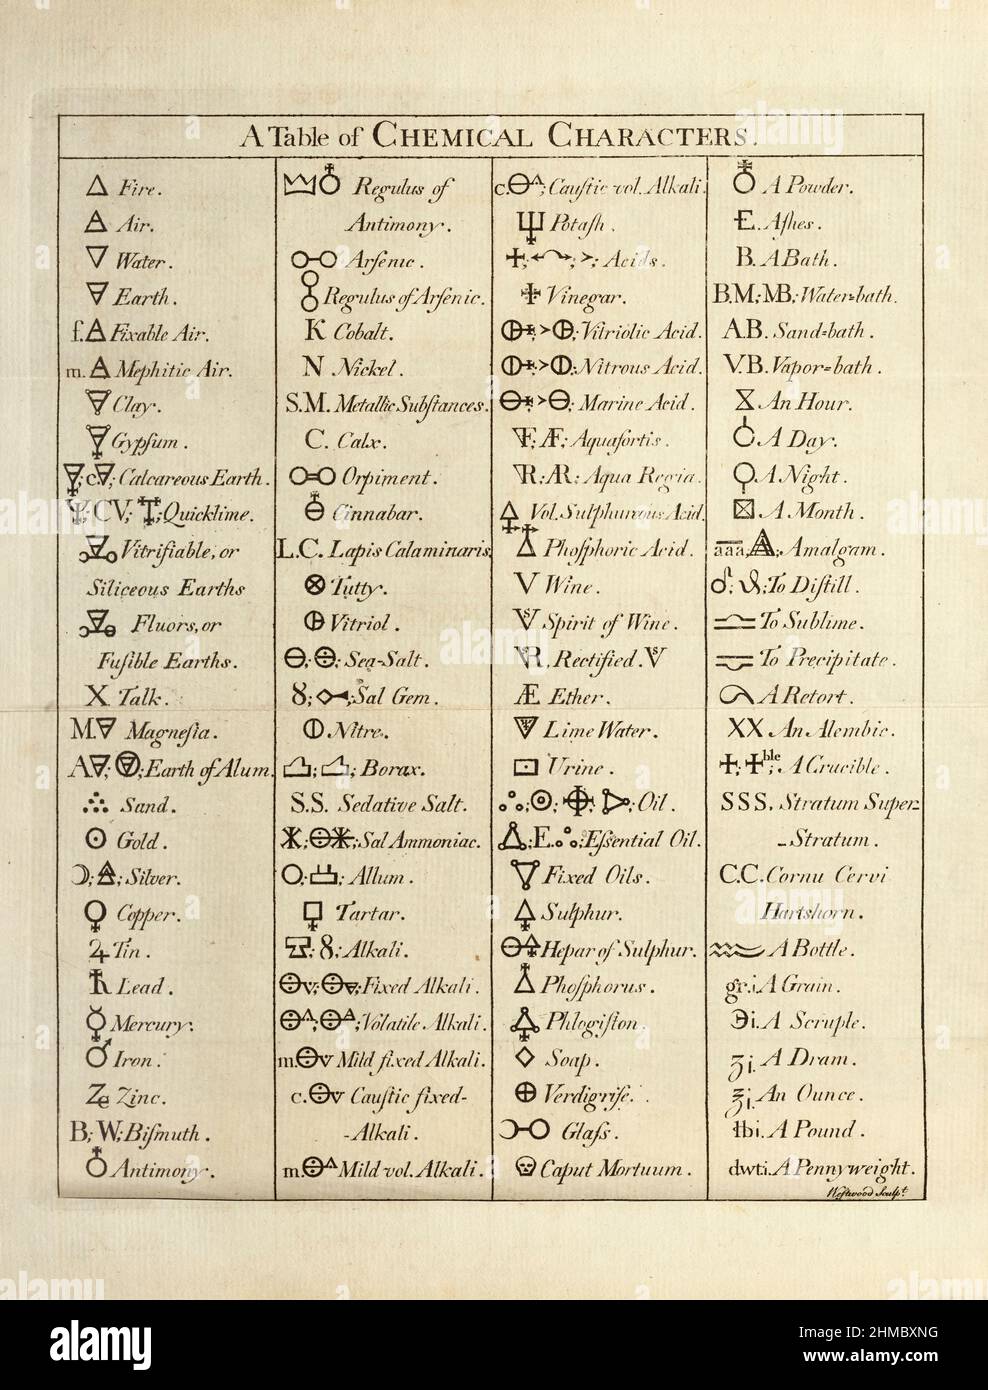 A Table of CHEMICAL CHARACTERS.
🜂 Fire.
🜁 Air.
🜄 Water.
🜃 Earth.
f.🜁 Fixable Air.
m.🜁 Mephitic Air.
Clay.
Gypſum.
Calcareous Earth.
CV, Quicklime.
Vitrifiable, or
Siliceous Earths
Fluors, or
Fuſible Earths.
X Talk.
M.🜃 Magneſia.
A🜃; Earth of Alum.
Sand.
☉ Gold.
Silver.
♀ Copper.
♃ Tin.
Lead.
☿ Mercury.
♂ Iron.
Zinc.
B; W; Biſmuth.
♁ Antimony.
Regulus of
Antimony.
Arſenic.
Regulus of Arſenic.
K Cobalt.
N Nickel.
S.M. Metallic Subſtances.
C. Calx.
Orpiment.
Cinnabar.
L.C. Lapis Calaminaris
⊗ Tutty.
Vitriol.
Sea-Salt.
Sal Gem.
Nitre.
Borax.
S.S. Sedative Salt.
Sal Ammoniac.
Allum.
Tartar.
Alkali.
Fixed Alkali.
Volatile Alkali.
m. Mild fixed Alkali.
c. Cauſtic fixed-
-Alkali.
m. Mild vol. Alkali.
c. Cauſtic vol. Alkali.
Potaſh.
Acids.
Vinegar.
Vitriolic Acid.
Nitrous Acid.
Marine Acid.
Æ; Aquafortis.
R; Aqua Regia.
Vol. Sulphureous Acid.
Phoſphoric Acid.
V Wine.
Spirit of Wine.
Rectified.
Æ Ether.
Lime Water.
Urine.
Oil.
E. Eſsential Oil.
Fixed Oils.
Sulphur.
Hepar of Sulphur.
Phoſphorus.
Phlogiſton.
◇ Soap.
⊕ Verdigriſe.
Glaſs.
Caput Mortuum.
♁ A Powder.
E. Aſhes.
B. A Bath.
B.M; MB; Water=bath.
A.B. Sand=bath.
V.B. Vapor=bath.
An Hour.
A Day.
A Night.
A Month.
aaa; Amalgam.
To Diſtill.
To Sublime.
To Precipitate.
A Retort.
XX An Alembic.
A Crucible.
SSS. Stratum Super-
-Stratum.
C.C. Cornu Cervi
Hartshorn.
A Bottle.
gr.i. A Grain.
℈i. A Scruple.
ʒi. A Dram.
℥i. An Ounce.
℔i. A Pound.
dwti. A Pennyweight.
Weſtwood Sculpt.
alamy
Image ID: 2HMBXNG
www.alamy.com